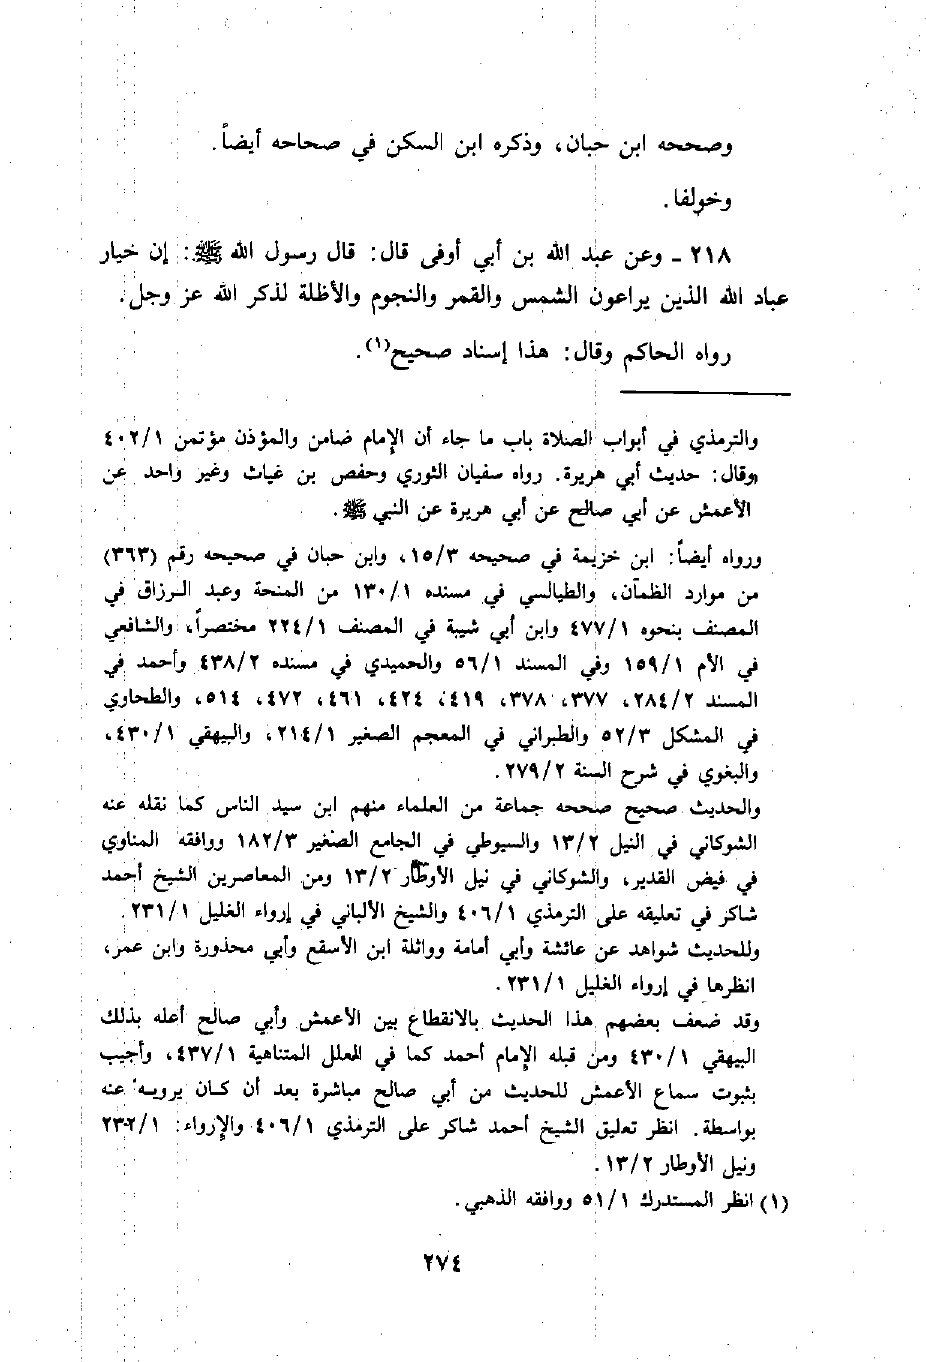 وصححه ابن حبان، وذكره ابن السكن في صحاحه أيضاً.
وخولفا.
٢١٨ ـ وعن عبد الله بن أبي أوفى قال: قال رسول الله ﷺ: إن خيار
عباد الله الذين يراعون الشمس والقمر والنجوم والأظلة لذكر الله عز وجل.
رواه الحاكم وقال: هذا إسناد صحيح(١).
والترمذي في أبواب الصلاة باب ما جاء أن الإمام ضامن والمؤذن مؤتمن ٤٠٢/١
وقال: حديث أبي هريرة. رواه سفيان الثوري وحفص بن غياث وغير واحد عن
الأعمش عن أبي صالح عن أبي هريرة عن النبي ﷺ.
ورواه أيضاً: ابن خزيمة في صحيحه ١٥/٣، وابن حبان في صحيحه رقم (٣٦٣)
من موارد الظمآن، والطيالسي في مسنده ١٣٠/١ من المنحة وعبد الرزاق في
المصنف بنحوه ٤٧٧/١ وابن أبي شيبة في المصنف ٢٢٤/١ مختصراً، والشافعي
في الأم ١٥٩/١ وفي المسند ٥٦/١ والحميدي في مسنده ٤٣٨/٢ وأحمد في
المسند ٢٨٤/٢، ٣٧٧، ٣٧٨، ٤١٩، ٤٢٤، ٤٦١، ٤٧٢، ٥١٤، والطحاوي
في المشكل ٥٢/٣ والطبراني في المعجم الصغير ٢١٤/١، والبيهقي ٤٣٠/١،
والبغوي في شرح السنة ٢٧٩/٢.
والحديث صحيح صححه جماعة من العلماء منهم ابن سيد الناس كما نقله عنه
الشوكاني في النيل ١٣/٢ والسيوطي في الجامع الصغير ١٨٢/٣ ووافقه المناوي
في فيض القدير، والشوكاني في نيل الأوطار ١٣/٢ ومن المعاصرين الشيخ أحمد
شاكر في تعليقه على الترمذي ٤٠٦/١ والشيخ الألباني في إرواء الغليل ٢٣١/١.
وللحديث شواهد عن عائشة وأبي أمامة وواثلة ابن الأسقع وأبي محذورة وابن عمر،
انظرها في إرواء الغليل ٢٣١/١.
وقد ضعف بعضهم هذا الحديث بالانقطاع بين الأعمش وأبي صالح أعله بذلك
البيهقي ٤٣٠/١ ومن قبله الإمام أحمد كما في العلل المتناهية ٤٣٧/١، وأجيب
بثبوت سماع الأعمش للحديث من أبي صالح مباشرة بعد أن كان يرويه عنه
بواسطة. انظر تعليق الشيخ أحمد شاكر على الترمذي ٤٠٦/١ والإرواء: ٢٣٢/١
ونيل الأوطار ١٣/٢.
(١) انظر المستدرك ٥١/١ ووافقه الذهبي.
٢٧٤